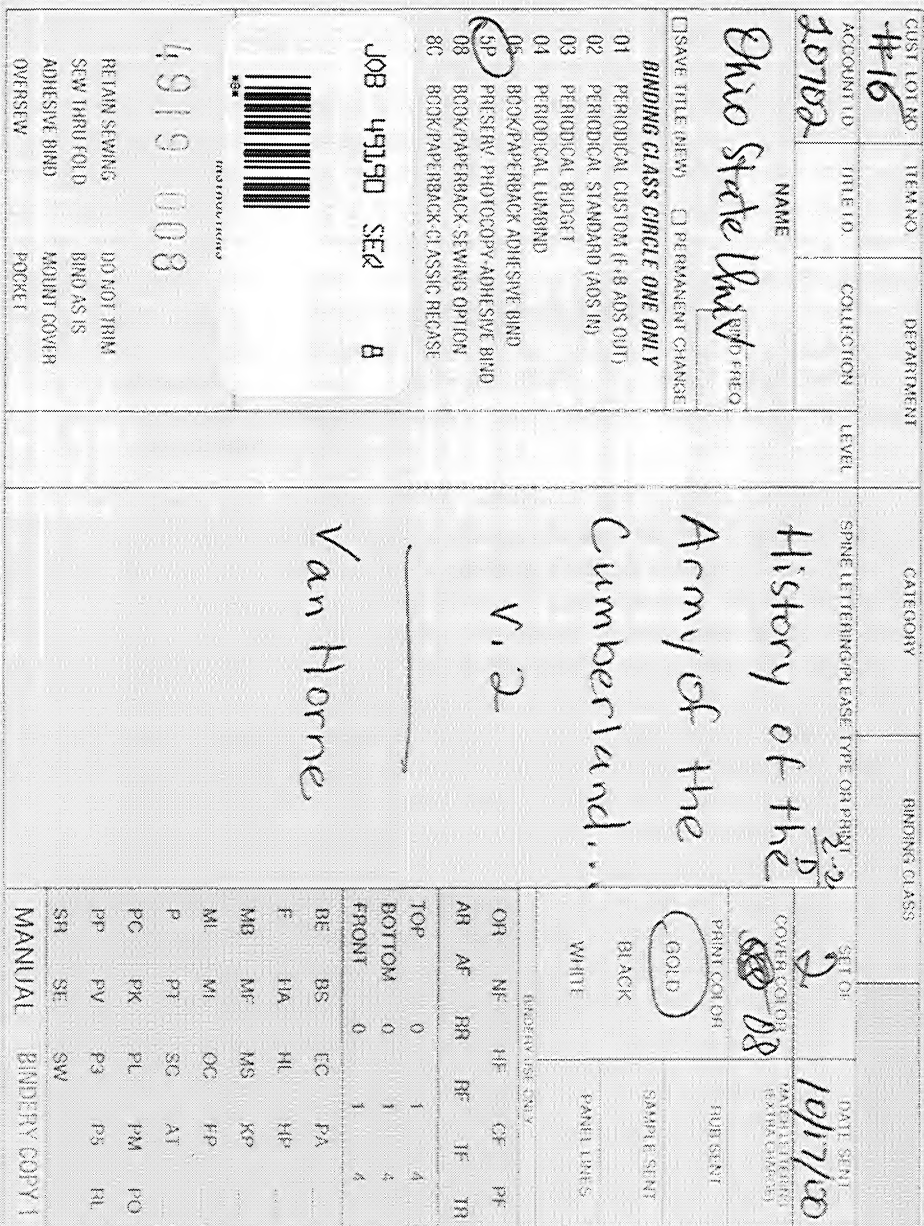 CUST LOT NO ITEM NO. DEPARTMENT CATEGORY BINDING CLASS
#16
ACCOUNT I.D. TITLE I.D. COLLECTION LEVEL
20702
NAME
Ohio State Univ
BIND FREQ
☐ SAVE TITLE (NEW) ☐ PERMANENT CHANGE
BINDING CLASS CIRCLE ONE ONLY
01 PERIODICAL CUSTOM (F/B ADS OUT)
02 PERIODICAL STANDARD (ADS IN)
03 PERIODICAL BUDGET
04 PERIODICAL LUMBIND
05 BOOK/PAPERBACK ADHESIVE BIND
5P PRESERV. PHOTOCOPY-ADHESIVE BIND
08 BOOK/PAPERBACK-SEWING OPTION
8C BOOK/PAPERBACK-CLASSIC RECASE
JOB 49190 SEQ 8
*8*
4919 008
RETAIN SEWING DO NOT TRIM
SEW THRU FOLD BIND AS IS
ADHESIVE BIND MOUNT COVER
OVERSEW POCKET
SPINE LETTERING/PLEASE TYPE OR PRINT
History of the
Army of the
Cumberland...
V. 2
Van Horne
2-2
D
SET OF
2
DATE SENT
10/17/00
COVER COLOR
08
MATCH LETTERING
(EXTRA CHARGE)
PRINT COLOR
RUB SENT
GOLD
SAMPLE SENT
BLACK
PANEL LINES
WHITE
BINDERY USE ONLY
OR NF HF CF PF
AR AF RR RF TF TR
TOP 0 1 4
BOTTOM 0 1 4
FRONT 0 1 4
BE BS EC PA
F HA HL HP
MB MF MS XP
ML MI OC FP
P PT SC AT
PC PK PL PM PO
PP PV P3 P5 RL
SR SE SW
MANUAL BINDERY COPY 1